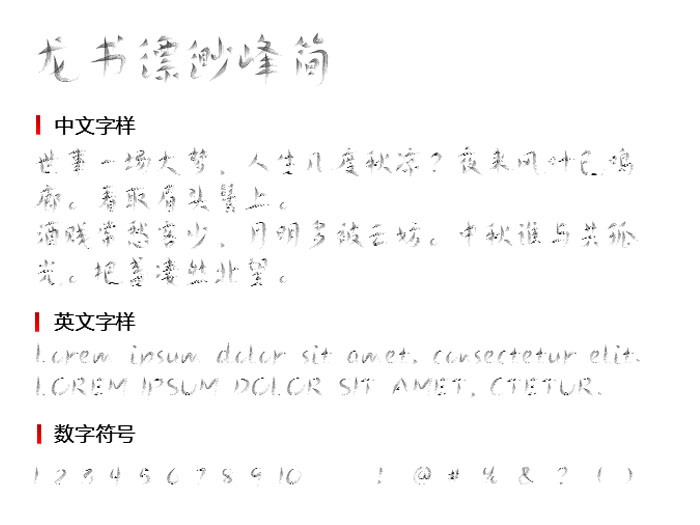 龙书缥缈峰简
中文字样
世事一场大梦，人生几度秋凉？夜来风叶已鸣
廊。看取眉头鬓上。
酒贱常愁客少，月明多被云妨。中秋谁与共孤
光。把盏凄然北望。
英文字样
Lorem ipsum dolor sit amet, consectetur elit.
LOREM IPSUM DOLOR SIT AMET, CTETUR.
数字符号
1 2 3 4 5 6 7 8 9 10 ! @ # % & ? ( )